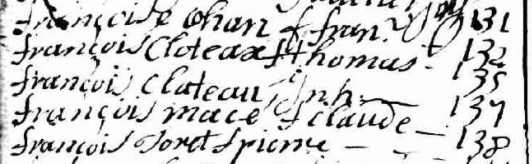 françoise Chan f fran 131
françois Cloteax f thomas 132
françois Clateau Inh 135
françois mace f claude 137
françois Soret f pierre 138